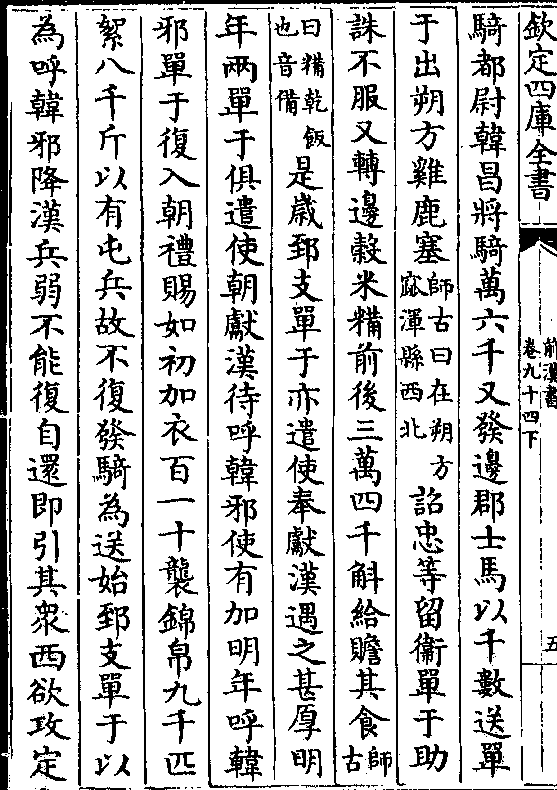 欽定四庫全書
前漢書
卷九十四下
五
騎都尉韓昌將騎萬六千又發邊郡士馬以千數送單
于出朔方雞鹿塞師古曰在朔方窳渾縣西北詔忠等留衞單于助
誅不服又轉邊穀米糒前後三萬四千斛給贍其食師古
曰糒乾飯也音備是嵗郅支單于亦遣使奉獻漢遇之甚厚明
年兩單于俱遣使朝獻漢待呼韓邪使有加明年呼韓
邪單于復入朝禮賜如初加衣百一十襲錦帛九千匹
絮八千斤以有屯兵故不復發騎為送始郅支單于以
為呼韓邪降漢兵弱不能復自還即引其衆西欲攻定